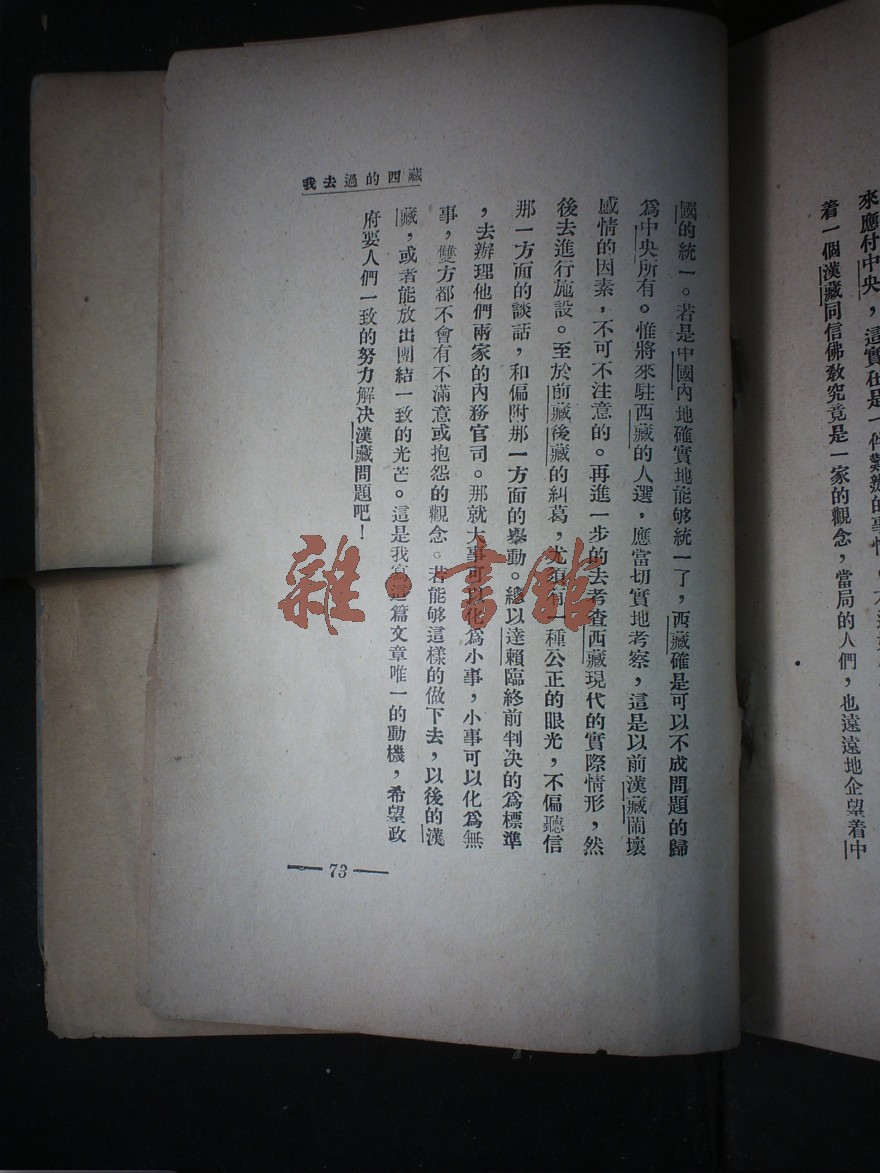 來應付中央，這實在是一個難辦的事情，
着一個漢藏同信佛教究竟是一家的觀念，當局的人們，也遠遠地企望着中
國的統一。若是中國內地確實地能够統一了，西藏確是可以不成問題的歸
爲中央所有。惟將來駐西藏的人選，應當切實地考察，這是以前漢藏鬧壞
感情的因素，不可不注意的。再進一步的去考查西藏現代的實際情形，然
後去進行施設。至於前藏後藏的糾葛，尤須有一種公正的眼光，不偏聽信
那一方面的談話，和偏附那一方面的舉動。總以達賴臨終前判決的爲標準
，去辦理他們兩家的內務官司。那就大事可以化爲小事，小事可以化爲無
事，雙方都不會有不滿意或抱怨的觀念。若能够這樣的做下去，以後的漢
藏，或者能放出團結一致的光芒。這是我寫這篇文章唯一的動機，希望政
府要人們一致的努力解決漢藏問題吧！
我去過的西藏
— 73 —
雜·書館